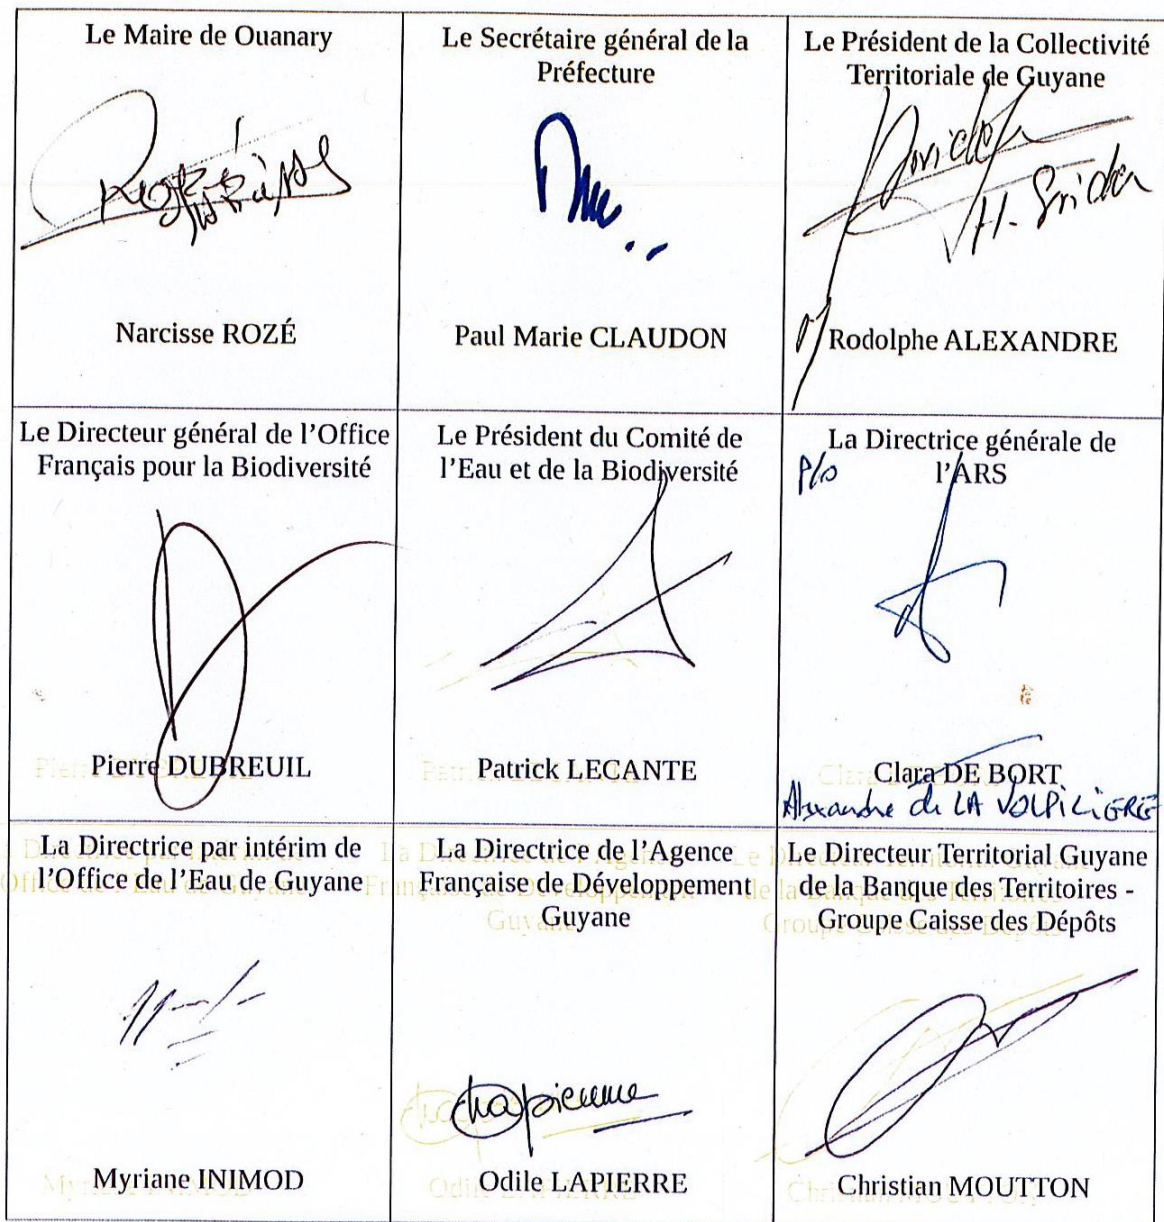 Le Maire de Ouanary
Narcisse ROZÉ
Le Secrétaire général de la
Préfecture
Paul Marie CLAUDON
Le Président de la Collectivité
Territoriale de Guyane
Rodolphe ALEXANDRE
Le Directeur général de l’Office
Français pour la Biodiversité
Pierre DUBREUIL
Le Président du Comité de
l’Eau et de la Biodiversité
Patrick LECANTE
La Directrice générale de
P/o l’ARS
Clara DE BORT
Alexandre de LA VOLPILIERE
La Directrice par intérim de
l’Office de l’Eau de Guyane
Myriane INIMOD
La Directrice de l’Agence
Française de Développement
Guyane
Odile LAPIERRE
Le Directeur Territorial Guyane
de la Banque des Territoires -
Groupe Caisse des Dépôts
Christian MOUTTON